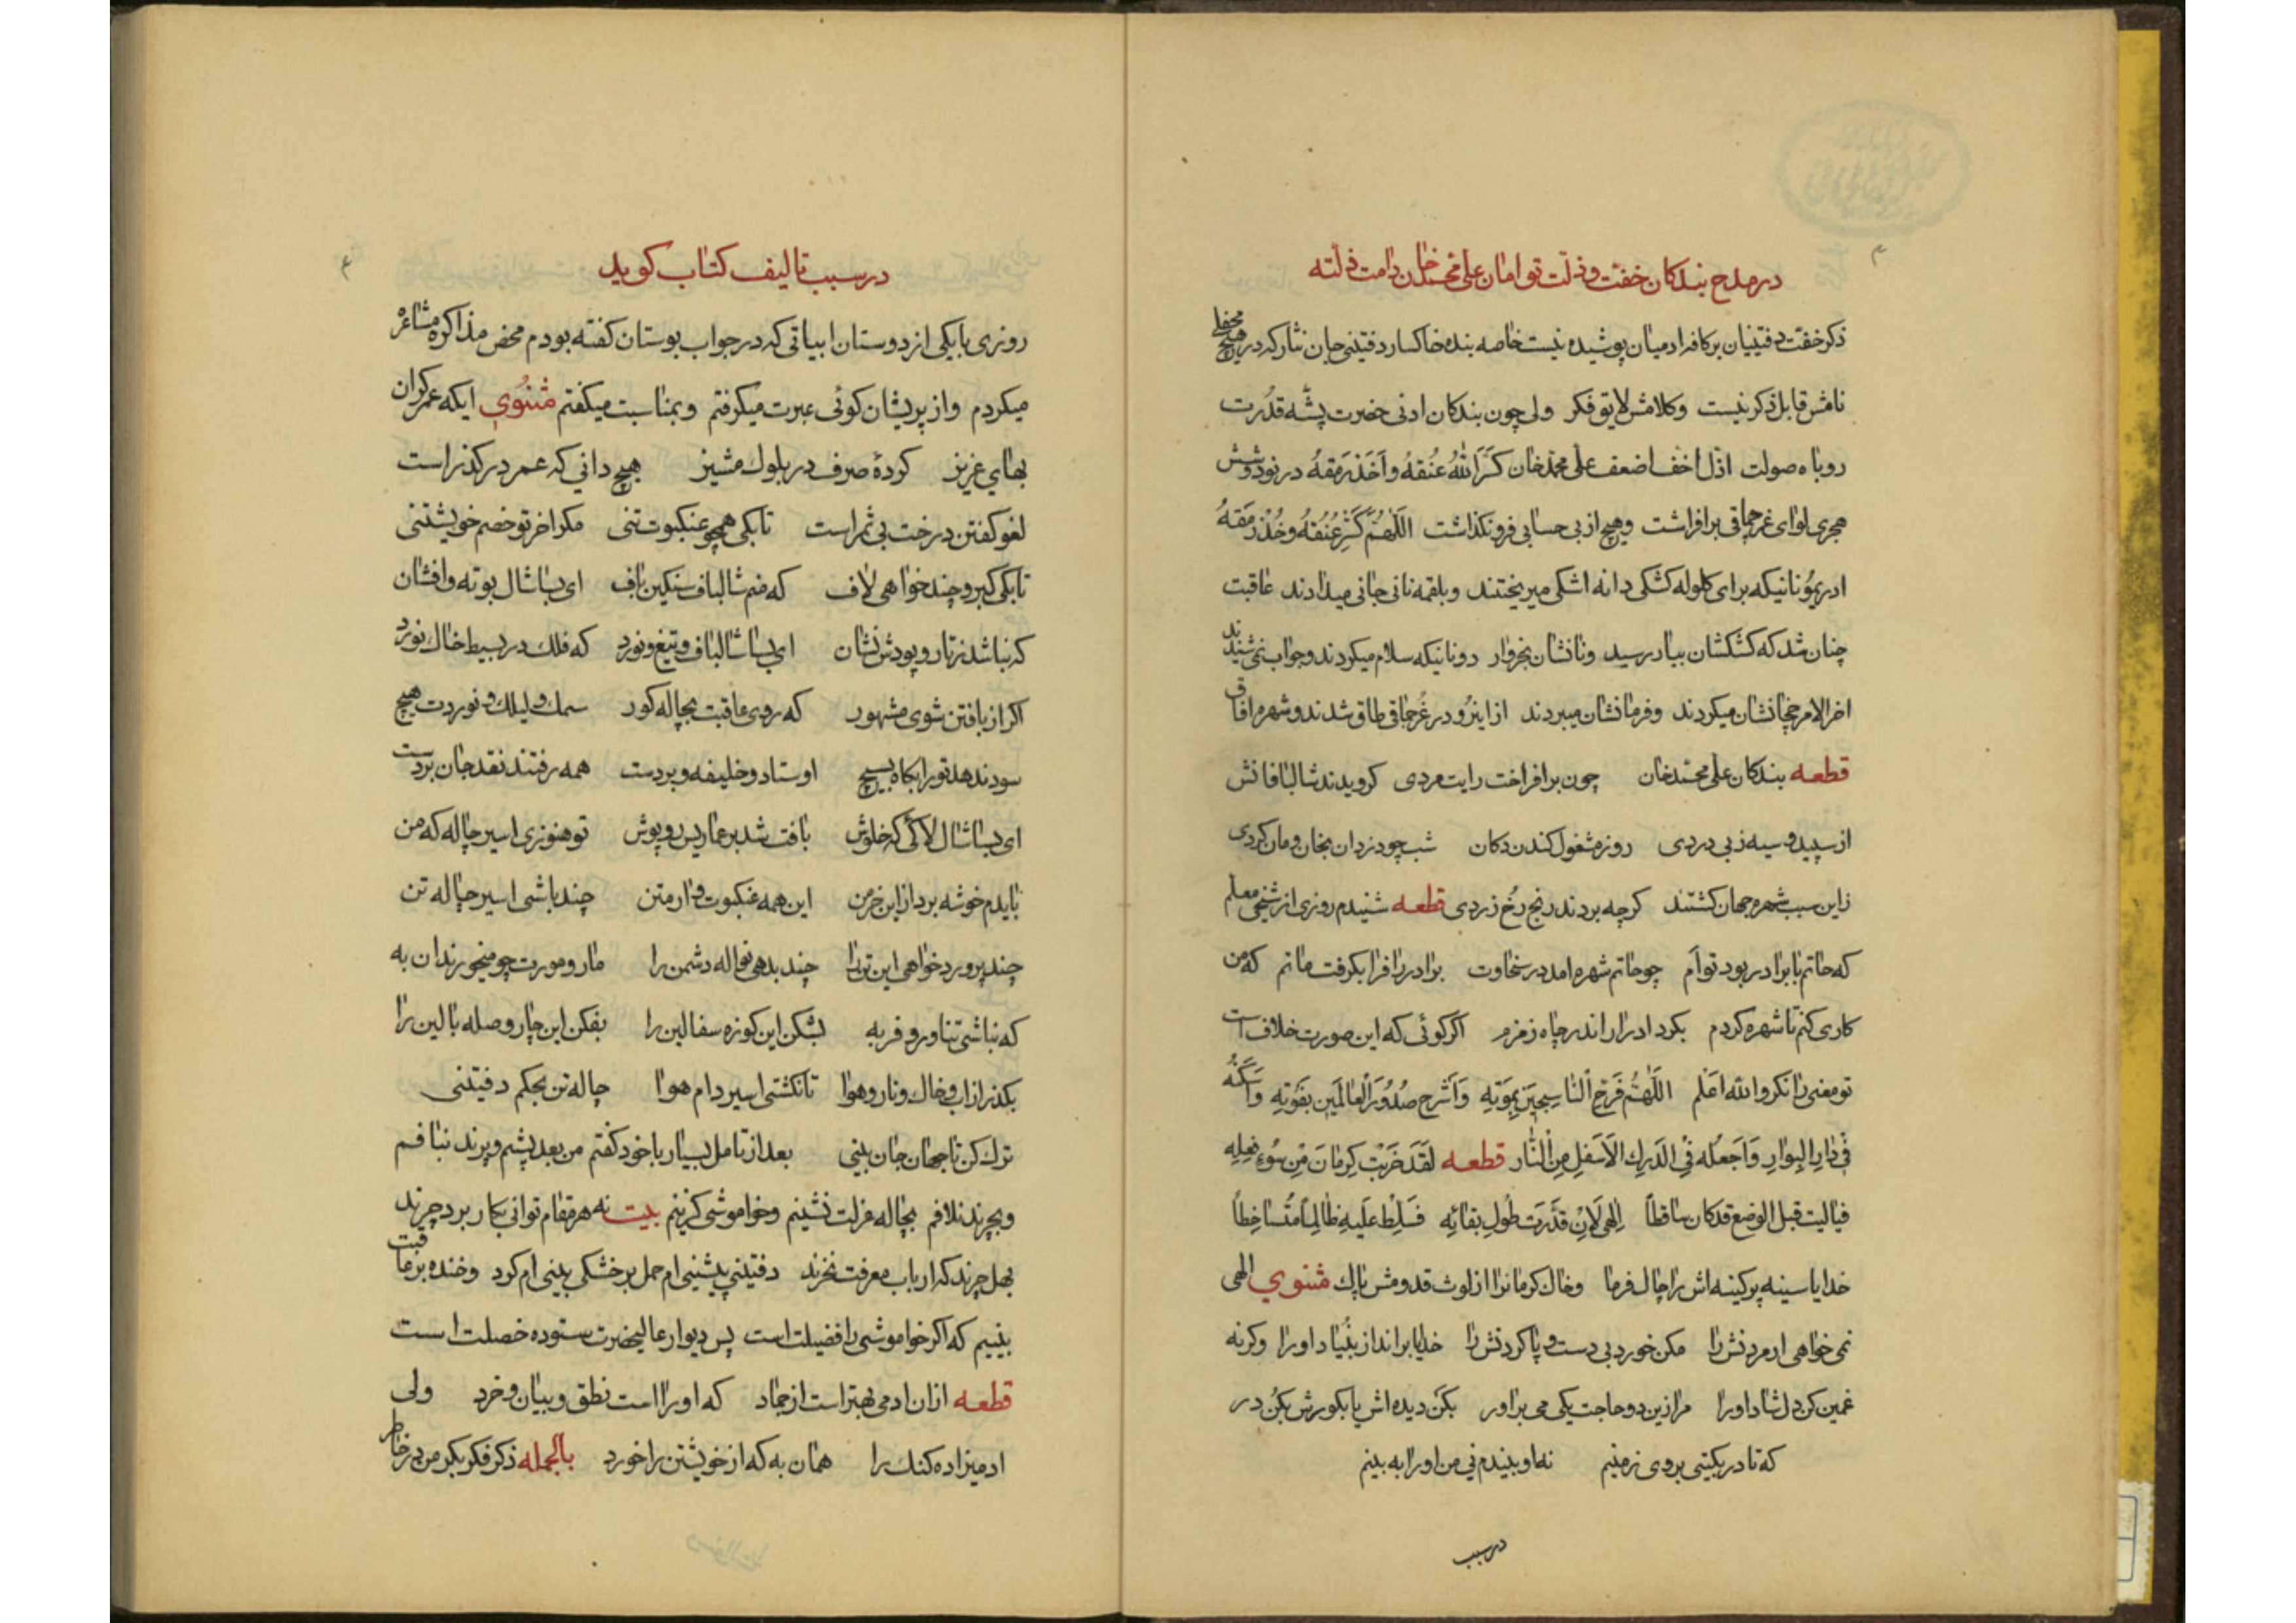 در مدح بندکان خفت و ذلت توامان علی محمد خان دامت ذلته
ذکر خفت دفتینیان بر کافه ادمیان پوشیده نیست خاصه بنده خاکسار دفتینی جان نثار که در هیچ محفلی
نامش قابل ذکر نیست وکلامش لایق فکر ولی چون بندکان ادنی حضرت پشه قدرت
روباه صولت اذل اخف اضعف علی محمد خان کسر الله عنقه و اخذ رمقه در نود و شش
هجری لوای غرچماقی برافراشت و هیچ از بی حسابی فرونکذاشت اللهم کسر عنقه وخذ رمقه
ادریمونانیکه برای کلوله کشکی دانه اشکی میریختند و بلقمه نانی جانی میدادند عاقبت
چنان شد که کشکشان ببار رسید ونانشان بخروار دونانیکه سلام میکردند وجواب نمی شنیدند
اخر الامر حچانشان میکردند وفرمانشان میبردند ازاینرو در غرچماقی طاق شدند وشهره افاق
قطعه بندکان علی محمدخان چون برافراخت رایت مردی کرویدند شالبافانش
از سپید و سیه زبی دردی روز مشغول کندن دکان شب چو دزدان بخان ومان کردی
زاین سبب شهره جهان کشتند کرچه بردند رنج رخ زردی قطعه شنیدم روزی از شیخی معلم
که حاتم با برادر بود توأم چو حاتم شهره امد در سخاوت برادر را فرا بکرفت ماتم که من
کاری کنم تا شهره کردم بکرد ادرار اندر چاه زمزم اکر کوئی که این صورت خلاف است
تو معنی دان کر والله اعلم اللهم فرح الناسجین بموته واشرح صدور العالمین بفوته واسکنه
فی دار البوار واجعله فی الدرک الاسفل من النار قطعه لقد خربت کرمان من سوء فعله
فیالیت قبل الوضع قد کان ساقطا الهی لان قدرت طول بقائه فسلط علیه ظالما متساخطا
خدایا سینه پر کینه اش را چاک فرما وخاک کرمانرا از لوث قدومش پاک مثنوی الهی
نمی خواهی ار مردنش را مکن خورد بی دست و پا کردنش را خدایا برانداز بنیاد اورا وکرنه
غمین کن دل شاد اورا مرا زین دو حاجت یکی می براور بکن دیده اش یا بکورش بکن در
که تا در یکیتی بروی زمینم نه او بیندم نی من اورا به بینم
در سبب
در سبب تالیف کتاب کوید
روزی با یکی از دوستان ابیاتی که در جواب بوستان کفته بودم محض مذاکره مشاعره
میکردم و از پریشان کوئی عبرت میکرفتم وبمناسبت میکفتم مثنوی ایکه عمر کران
بهای عزیز کردهٔ صرف در بلوک مشیز هیچ دانی که عمر در کذر است
لغو کفتن درخت بی ثمر است تا بکی همچو عنکبوت تنی مکر اخر تو خصم خویشتنی
تا بکی کبر و چند خواهی لاف که منم شالباف سنکین باف ای بسا شال بوته وافشان
که نباشد ز تار و پودش نشان ای بسا شالباف وتیغ ونورد که فلک در بسیط خاک نورد
اکر از بافتن شوی مشهور که روی عاقبت بچاله کور سمک ولیلک ونوردت هیچ
سود ندهد تورا بکاه بسیچ اوستاد وخلیفه وبردست همه رفتند نقد جان بردست
ای بسا شال لاکی که خلوش بافت شد بر عماریس روپوش تو هنوزی اسیر چاله که من
بایدم خوشه برد از این خرمن این همه عنکبوت وار متن چند باشی اسیر چاله تن
چند پرورد خواهی این تن را چند بدهی نواله دشمن را مار ومورت چو میخورند ان به
که نباشی تناور و فربه بشکن این کوزه سفالین را بفکن این چار وصله بالین را
بکذر از اب وخاک ونار وهوا تا نکشتی اسیر دام هوا چاله تن بحکم دفتینی
ترک کن تا جهان جان بینی بعد از تامل بسیار با خود کفتم من بعد پشم وپرند نبافم
وبچرند نلافم بچاله عزلت نشینم وخواموشی کزینم بیت نه هر مقام توانی بکار برد چرند
بهل چرند که ارباب معرفت نخرند دفتینی پیشینی ام حمل بر خشکی بینی ام کرد وخنده بر عاقبت
بینیم که اکر خواموشی را فضیلت است پس دیوار عالیحضرت ستوده خصلت است
قطعه ازان ادمی بهتر است از جماد که اورا است نطق و بیان وخرد ولی
ادمیزاده کنک را همان به که از خویشتن را خورد بالجمله ذکر فکر بکر من در خاطر